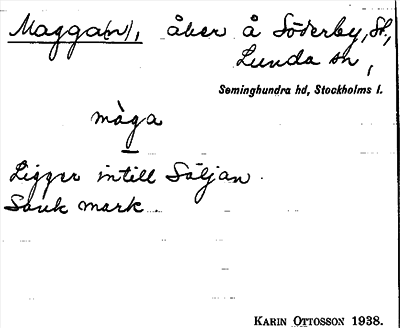 Magga(n), åker å Söderby, St.,
Lunda sn,
Seminghundra hd, Stockholms l.
màga
Ligger intill Säljan.
Sank mark.
KARIN OTTOSSON 1938.